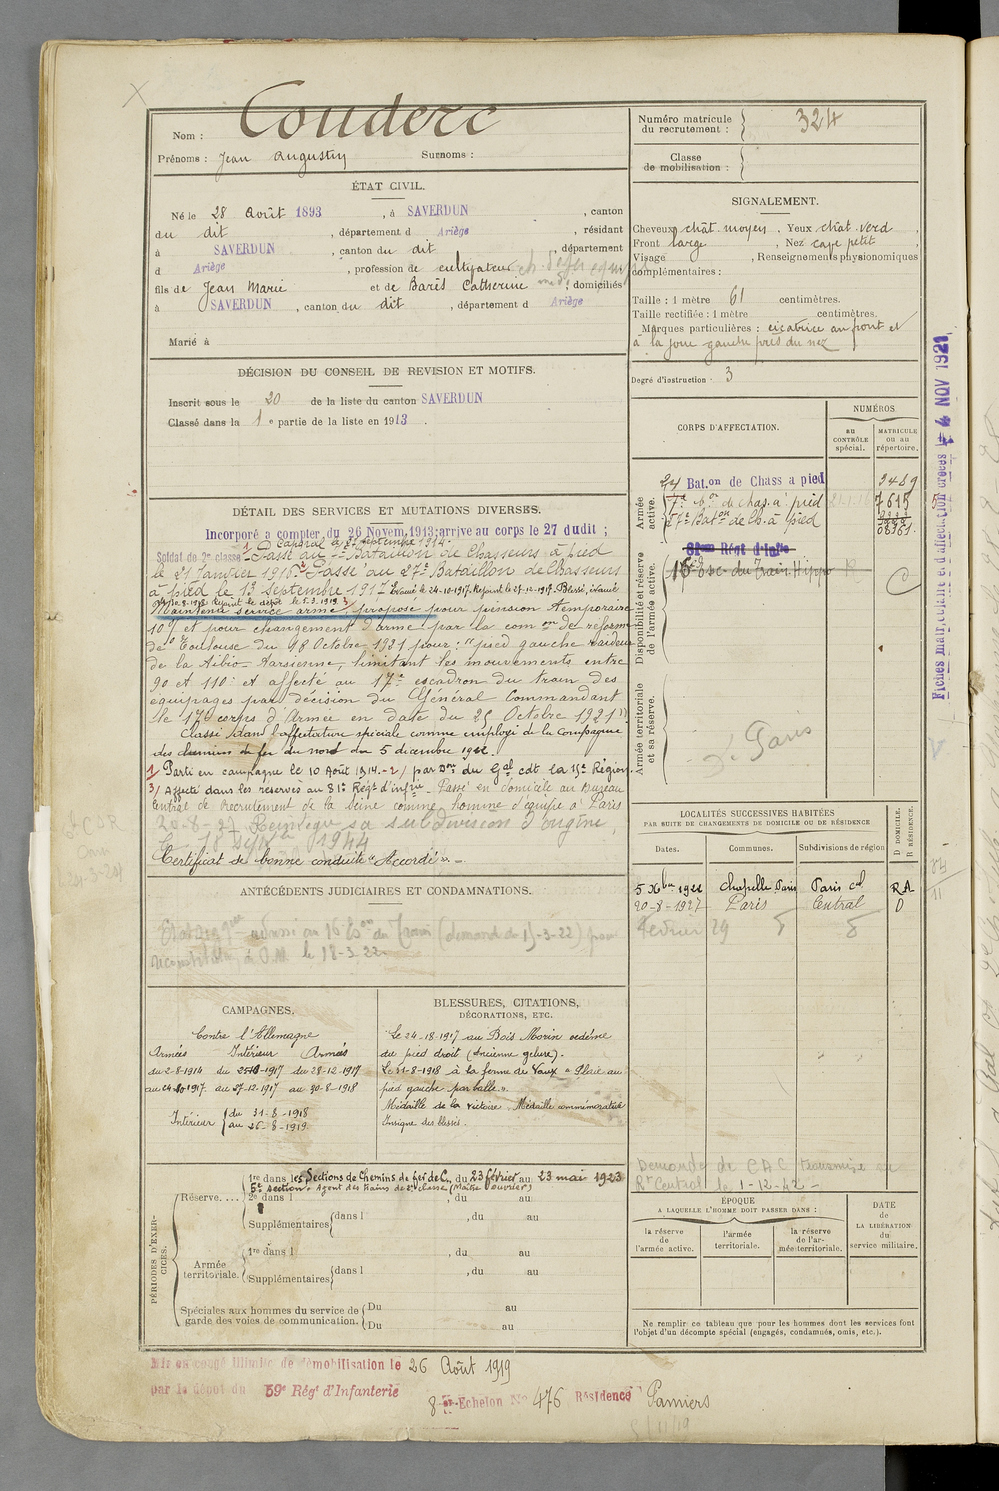 Nom : Couderc
Prénoms : Jean Augustin Surnoms :
ÉTAT CIVIL.
Né le 28 Août 1893, à SAVERDUN, canton
du dit, département d Ariège, résidant
à SAVERDUN, canton du dit, département
d Ariège, profession de cultivateur
fils de Jean Marie et de Barès Catherine, domiciliés
à SAVERDUN, canton du dit, département d Ariège
Marié à
DÉCISION DU CONSEIL DE REVISION ET MOTIFS.
Inscrit sous le 20 de la liste du canton SAVERDUN
Classé dans la 1e partie de la liste en 1913.
DÉTAIL DES SERVICES ET MUTATIONS DIVERSES.
Incorporé a compter du 26 Novem. 1913; arrive au corps le 27 dudit ;
Caporal le 21 septembre 1914
Soldat de 2e classe Passé au Bataillon de Chasseurs à pied
le 21 Janvier 1916. Passé au 27e Bataillon de Chasseurs
à pied le 13 septembre 1917 Evacué le 24-10-1917. Rejoint le 27-12-1917. Blessé, évacué
le 30-8-1918 Rejoint le dépôt le 5-3-1919
Maintenu service armé, proposé pour pension temporaire
10% et pour changement d'arme par la comon de réforme
de Toulouse du 18 Octobre 1921 pour : "pied gauche raideur
de la tibio-tarsienne, limitant les mouvements entre
90 et 110° et affecté au 17e escadron du train des
équipages par décision du Général Commandant
le 17e corps d'Armée en date du 25 Octobre 1921"
Classé dans l'affectation spéciale comme employé de la compagnie
des chemins de fer du nord du 5 décembre 1922.
1/ Parti en campagne le 10 Août 1914 - 2/ par Don du Gal cdt la 15e Région.
3/ Affecté dans les réserves au 81e Régt d'Infrie - Passé en domicile au Bureau
Central de Recrutement de la Seine comme homme d'équipe à Paris
20-8-27 Réintègre sa subdivision d'origine,
1944
Certificat de bonne conduite "Accordé" -
ANTÉCÉDENTS JUDICIAIRES ET CONDAMNATIONS.
au 16 Eson du Train
à O.M. le 18-3-22
CAMPAGNES.
Contre l'Allemagne
Armées Intérieur Armées
du 2-8-1914 du 25-10-1917 du 28-12-1917
au 24-10-1917 au 27-12-1917 au 30-8-1918
Intérieur { du 31-8-1918
au 26-8-1919
BLESSURES, CITATIONS,
DÉCORATIONS, ETC.
Le 24-18-1917 au Bois Morin oedème
du pied droit (ancienne gelure).
Le 31-8-1918 à la ferme de Vaux "Plaie au
pied gauche par balle".
Médaille de la victoire. Médaille commémorative
Insigne des blessés.
PÉRIODES D'EXERCICES.
Réserve.... { 1re dans les Sections de Chemins de fer de C., du 23 février au 23 mai 1923
5e section. Agent des trains de 2e classe (Maître ouvrier)
2e dans l , du au
Supplémentaires { dans l , du au
Armée territoriale. { 1re dans l , du au
Supplémentaires { dans l , du au
Spéciales aux hommes du service de garde des voies de communication. { Du au
Du au
Mis en congé illimité de démobilisation le 26 Août 1919
par le dépôt du 59e Régt d'Infanterie
8e Echelon No 476 Résidence Pamiers
Numéro matricule du recrutement : } 324
Classe de mobilisation : }
SIGNALEMENT.
Cheveux chât. moyen. Yeux chât. verd
Front large, Nez cave petit
Visage , Renseignements physionomiques
complémentaires :
Taille : 1 mètre 61 centimètres.
Taille rectifiée : 1 mètre centimètres.
Marques particulières : cicatrice au front et
à la joue gauche près du nez
Degré d'instruction : 3
CORPS D'AFFECTATION.
NUMÉROS
AU CONTRÔLE spécial.
MATRICULE ou au répertoire.
Armée active.
24 Bat.on de Chass a pied 3489
7e bon de chas. à pied 7615
27e Baton de Ch. à pied 08361
Disponibilité et réserve de l'armée active.
81eme Régt d'Infie
16e Esc. du Train Hippo
Armée territoriale et sa réserve.
Paris
LOCALITÉS SUCCESSIVES HABITÉES
PAR SUITE DE CHANGEMENTS DE DOMICILE OU DE RÉSIDENCE
Dates. Communes. Subdivisions de région D DOMICILE. R RÉSIDENCE.
5 Xbre 1922 Chapelle Paris Paris cal RA
20-8-1927 Paris Central D
Février 29
Demande de C A C transmise
Rt Central le 1-12-42
ÉPOQUE
A LAQUELLE L'HOMME DOIT PASSER DANS :
la réserve de l'armée active. l'armée territoriale. la réserve de l'armée territoriale.
DATE de LA LIBÉRATION du service militaire.
Ne remplir ce tableau que pour les hommes dont les services font
l'objet d'un décompte spécial (engagés, condamnés, omis, etc.).
Fiches matriculaire et d'affectation créées le 4 NOV 1921